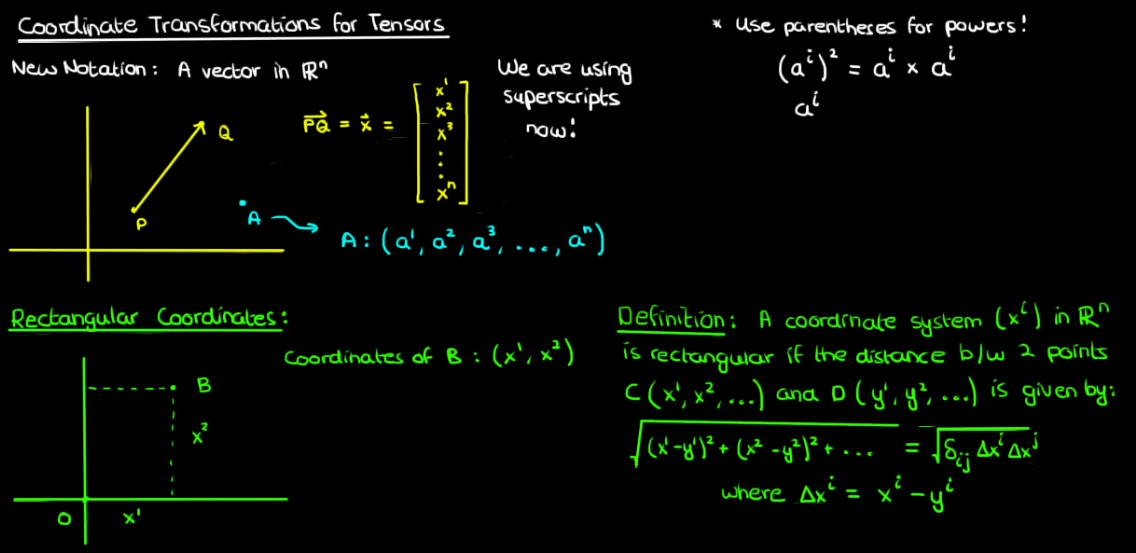 Coordinate Transformations for Tensors
New Notation: A vector in ℝⁿ
We are using
superscripts
now!
* Use parentheses for powers!
(aⁱ)² = aⁱ × aⁱ
aⁱ
Q
P
PQ⃗ = x⃗ =
x¹
x²
x³
⋮
xⁿ
A
A: (a¹, a², a³, ..., aⁿ)
Rectangular Coordinates:
Coordinates of B: (x¹, x²)
B
x²
O
x¹
Definition: A coordinate system (xⁱ) in ℝⁿ
is rectangular if the distance b/w 2 points
C(x¹, x², ...) and D(y¹, y², ...) is given by:
√((x¹-y¹)² + (x²-y²)² + ...) = √(δᵢⱼ Δxⁱ Δxʲ)
where Δxⁱ = xⁱ - yⁱ